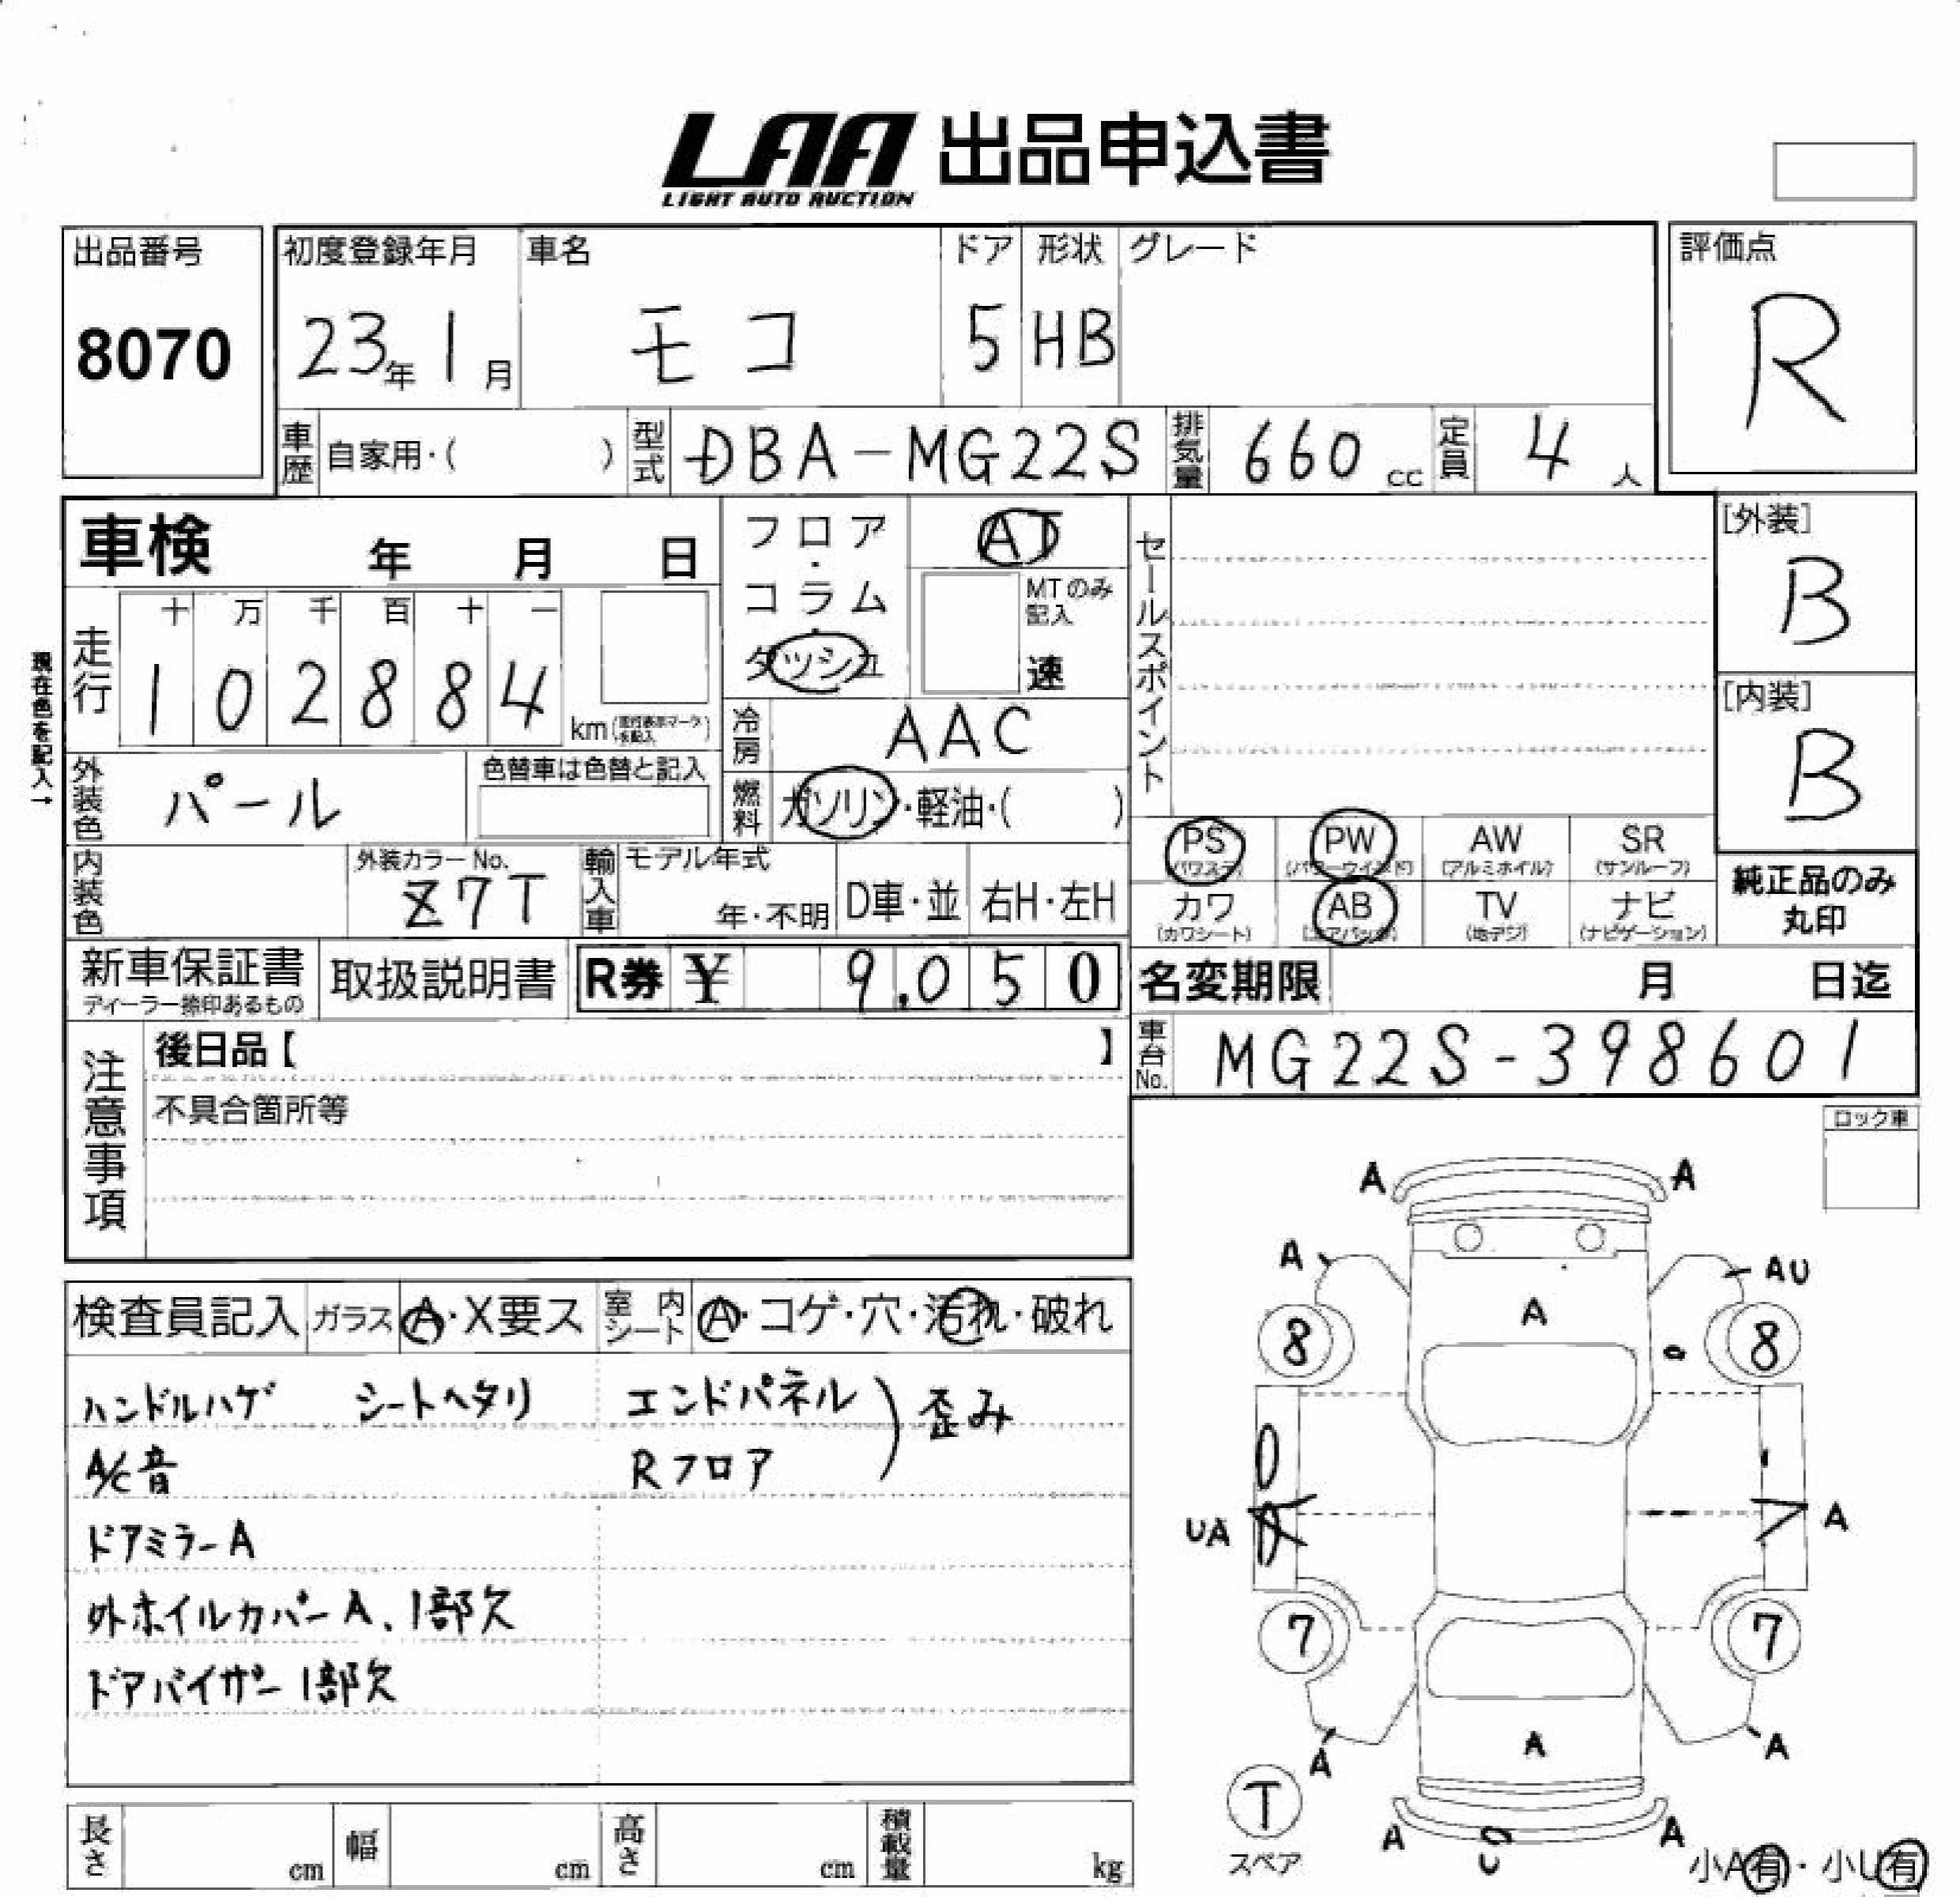 LAA 出品申込書
LIGHT AUTO AUCTION
出品番号
8070
初度登録年月
23年 1月
車名
モコ
ドア
5
形状
HB
グレード
評価点
R
車歴 自家用・( )
型式 DBA-MG22S
排気量 660 cc
定員 4 人
車検 年 月 日
フロア・コラム・ダッシュ
AT
MTのみ記入
速
セールスポイント
[外装]
B
[内装]
B
現在色を記入→
走行
十 万 千 百 十 一
1 0 2 8 8 4
km(走行表示マークを記入)
冷房 AAC
外装色 パール
色替車は色替と記入
燃料 ガソリン・軽油・( )
PS (パワステ)
PW (パワーウインド)
AW (アルミホイル)
SR (サンルーフ)
カワ (カワシート)
AB (エアバッグ)
TV (地デジ)
ナビ (ナビゲーション)
純正品のみ
丸印
内装色
外装カラーNo.
Z7T
輸入車
モデル年式
年・不明
D車・並
右H・左H
新車保証書
ディーラー捺印あるもの
取扱説明書
R券 ¥ 9,050
名変期限 月 日迄
車台No. MG22S-398601
注意事項
後日品【 】
不具合箇所等
ロック車
検査員記入
ガラス A・X要ス
室内シート A・コゲ・穴・汚れ・破れ
ハンドルハゲ シートヘタリ
エンドパネル
Rフロア
歪み
A/C音
ドアミラーA
外ホイルカバーA、1部欠
ドアバイザー1部欠
A A
A AU
A
8 8
UA A
7 7
A A A
T
スペア
A U A
小A有・小U有
長さ cm
幅 cm
高さ cm
積載量 kg